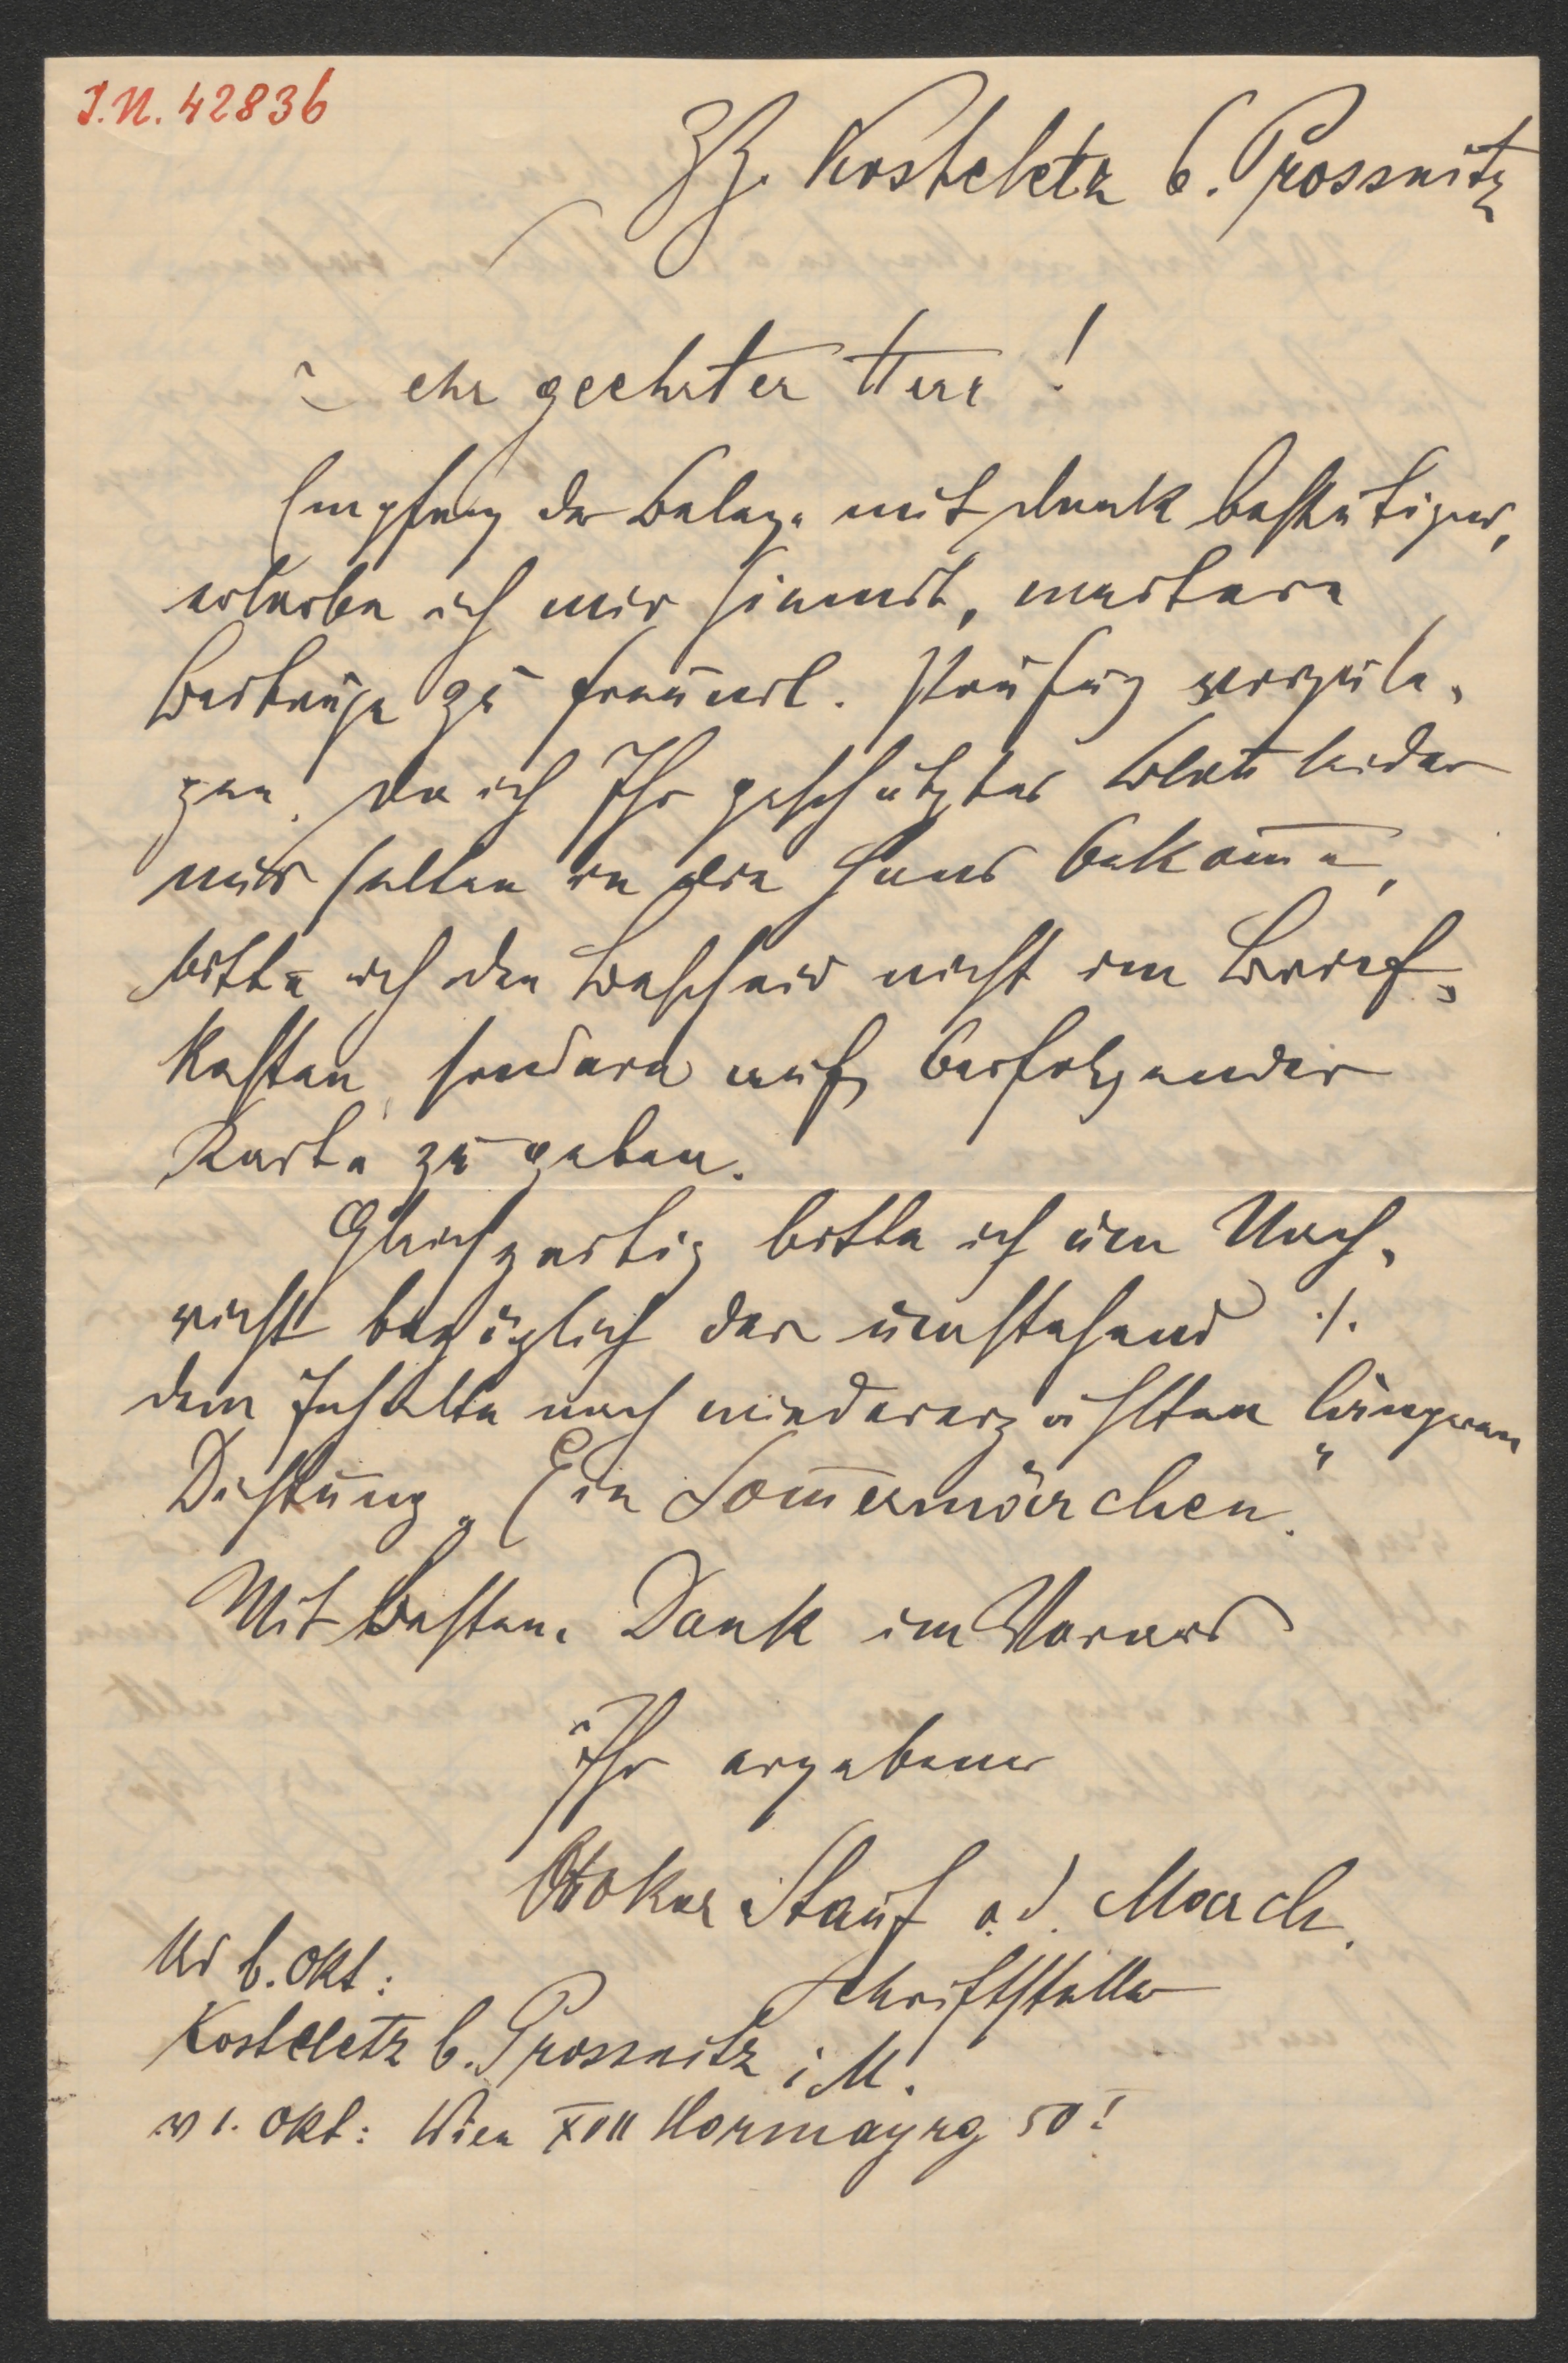 I.N. 42836
Zz. Kosteletz b. Prossnitz
Sehr geehrter Herr!
Empfang der Belege mit Dank bestätigend,
erlaube ich mir hiemit, weitere
Beiträge zu freundl. Prüfung vorzule-
gen. Da ich Ihr geschätztes Blatt leider
nur selten in die Hand bekom̅e,
bitte ich den Bescheid nicht im Brief-
kasten, sondern auf beifolgender
Karte zu geben.
Gleichzeitig bitte ich um Nach-
richt bezüglich der umstehend ./.
dem Inhalte nach wiedererzählten längeren
Dichtung „Ein Som̅ermärchen."
Mit Besten Dank im Voraus
Ihr ergebener
Ottokar Stauf v. d. March.
Schriftsteller
b. Okt:
Kosteletz b. Prossnitz i M.
v 1. Okt: Wien XVII Hormayrg 50!